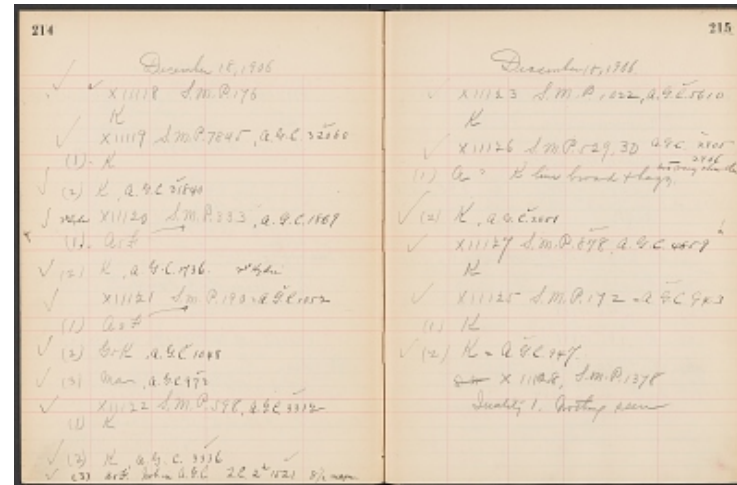 214
December 18, 1906
X 11118 S.M.P. 176
K
X 11119 S.M.P. 7845, A.G.C. 32060
(1). K
(2) K, A.G.C. 31840
X 11120 S.M.P. 333, A.G.C. 1869
(1). A or F
(2) K, A.G.C. 1736.
X 11121 S.M.P. 190 = A.G.C. 1052
(1) A or F
(2) G or K, A.G.C. 1048
(3) Mar, A.G.C. 972
X 11122 S.M.P. 598, A.G.C. 3312
(1) K
(2) K A.G.C. 3336
(3) A or F. Not in A.G.C.
215
December 18, 1906.
X 11123 S.M.P. 1022, A.G.C. 5610
K
X 11126 S.M.P. 529, 30 A.G.C.
2906
(1) K line broad & hazy.
(2) K, A.G.C.
X 11127 S.M.P. 878, A.G.C. 4659
K
X 11125 S.M.P. 172 = A.G.C. 943
(1) K
(2) K = A.G.C. 947.
X 11128, S.M.P. 1378
Quality 1. Nothing seen